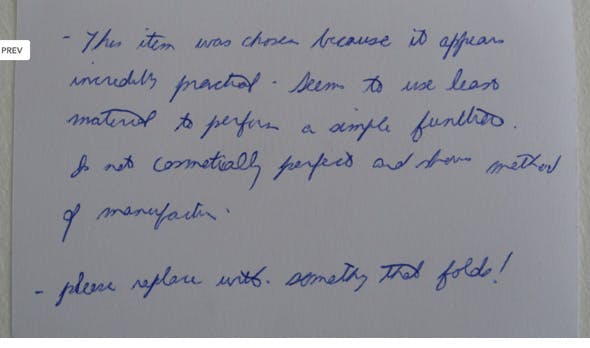 PREV
- This item was chosen because it appears
incredibly practical. Seems to use least
material to perform a simple function.
Is not cosmetically perfect and shows method
of manufacture.
- please replace with something that folds!